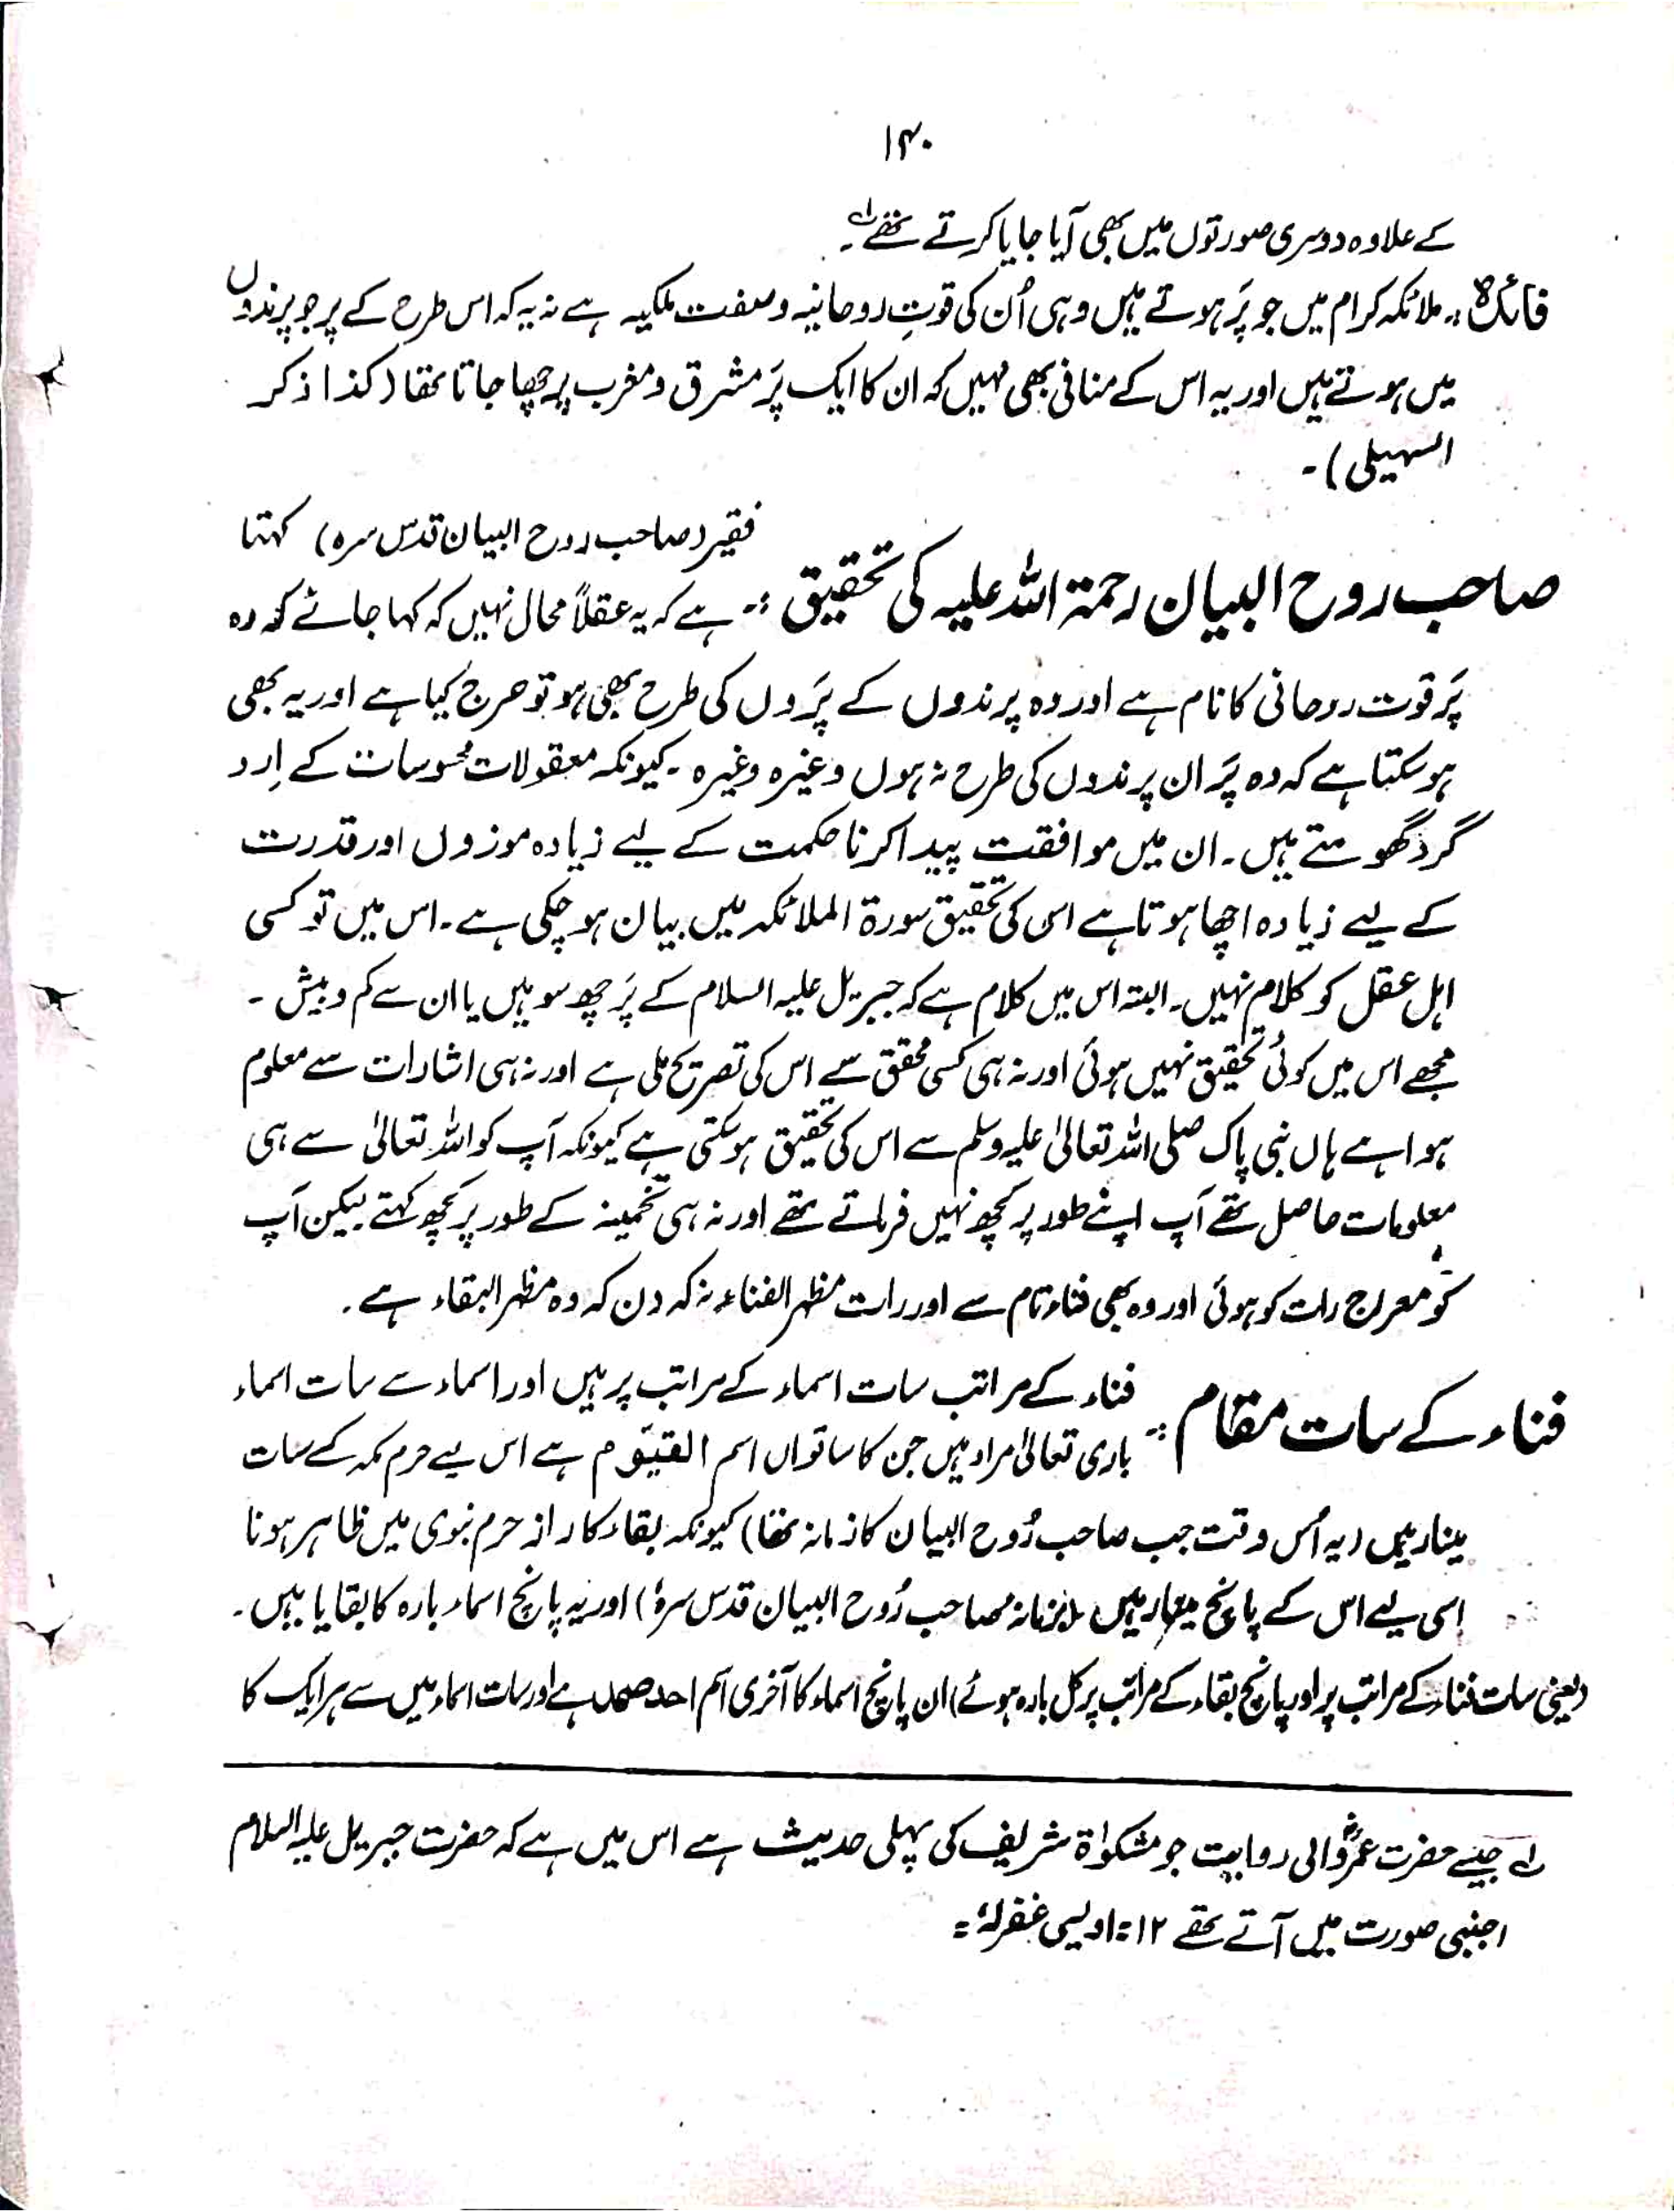 ۱۴۰
کے علاوہ دوسری صورتوں میں بھی آیا جایا کرتے تھے لہ۔
فائدہ :۔ ملائکہ کرام میں جو پَر ہوتے ہیں وہی اُن کی قوتِ روحانیہ و صفت ملکیہ ہے نہ یہ کہ اس طرح کے پر جو پرندوں
میں ہوتے ہیں اور یہ اس کے منافی بھی نہیں کہ ان کا ایک پَر مشرق و مغرب پر چھا جاتا تھا (کذا ذکر
السہیلی)۔
صاحب روح البیان رحمۃ اللہ علیہ کی تحقیق :۔ فقیر (صاحب روح البیان قدس سرہ) کہتا
ہے کہ یہ عقلاً محال نہیں کہ کہا جائے کہ وہ
پَر قوت روحانی کا نام ہے اور وہ پرندوں کے پَروں کی طرح بھی ہو تو حرج کیا ہے اور یہ بھی
ہو سکتا ہے کہ وہ پَر ان پرندوں کی طرح نہ ہوں وغیرہ وغیرہ ۔ کیونکہ معقولات محسوسات کے اِرد
گرد گھومتے ہیں۔ ان میں موافقت پیدا کرنا حکمت کے لیے زیادہ موزوں اور قدرت
کے لیے زیادہ اچھا ہوتا ہے اسی کی تحقیق سورۃ الملائکہ میں بیان ہو چکی ہے۔ اس میں تو کسی
اہل عقل کو کلام نہیں۔ البتہ اس میں کلام ہے کہ جبریل علیہ السلام کے پَر چھ سو ہیں یا ان سے کم و بیش ۔
مجھے اس میں کوئی تحقیق نہیں ہوئی اور نہ ہی کسی محقق سے اس کی تصریح ملی ہے اور نہ ہی اشارات سے معلوم
ہوا ہے ہاں نبی پاک صلی اللہ تعالیٰ علیہ وسلم سے اس کی تحقیق ہو سکتی ہے کیونکہ آپ کو اللہ تعالیٰ سے ہی
معلومات حاصل تھے آپ اپنے طور پر کچھ نہیں فرماتے تھے اور نہ ہی تخمینہ کے طور پر کچھ کہتے لیکن آپ
کو معراج رات کو ہوئی اور وہ بھی فناء تام سے اور رات مظہر الفناء نہ کہ دن کہ وہ مظہر البقاء ہے۔
فناء کے سات مقام :۔ فناء کے مراتب سات اسماء کے مراتب پر ہیں اور اسماء سے سات اسماء
باری تعالیٰ مراد ہیں جن کا ساتواں اسم القیّوم ہے اس لیے حرم مکہ کے سات
مینار ہیں (یہ اُس وقت جب صاحب رُوح البیان کا زمانہ تھا) کیونکہ بقاء کا راز حرم نبوی میں ظاہر ہونا
اسی لیے اس کے پانچ مینار ہیں (بزمانہ صاحب رُوح البیان قدس سرہٗ) اور یہ پانچ اسماء بارہ کا بقایا ہیں۔
(یعنی سات فناء کے مراتب پر اور پانچ بقاء کے مراتب پر کل بارہ ہوئے) ان پانچ اسماء کا آخری اسم احد صمد ہے اور سات اسماء میں سے ہر ایک کا
لہ جیسے حضرت عمرؓ والی روایت جو مشکوٰۃ شریف کی پہلی حدیث ہے اس میں ہے کہ حضرت جبریل علیہ السلام
اجنبی صورت میں آتے تھے ۱۲= اویسی غفرلہٗ =